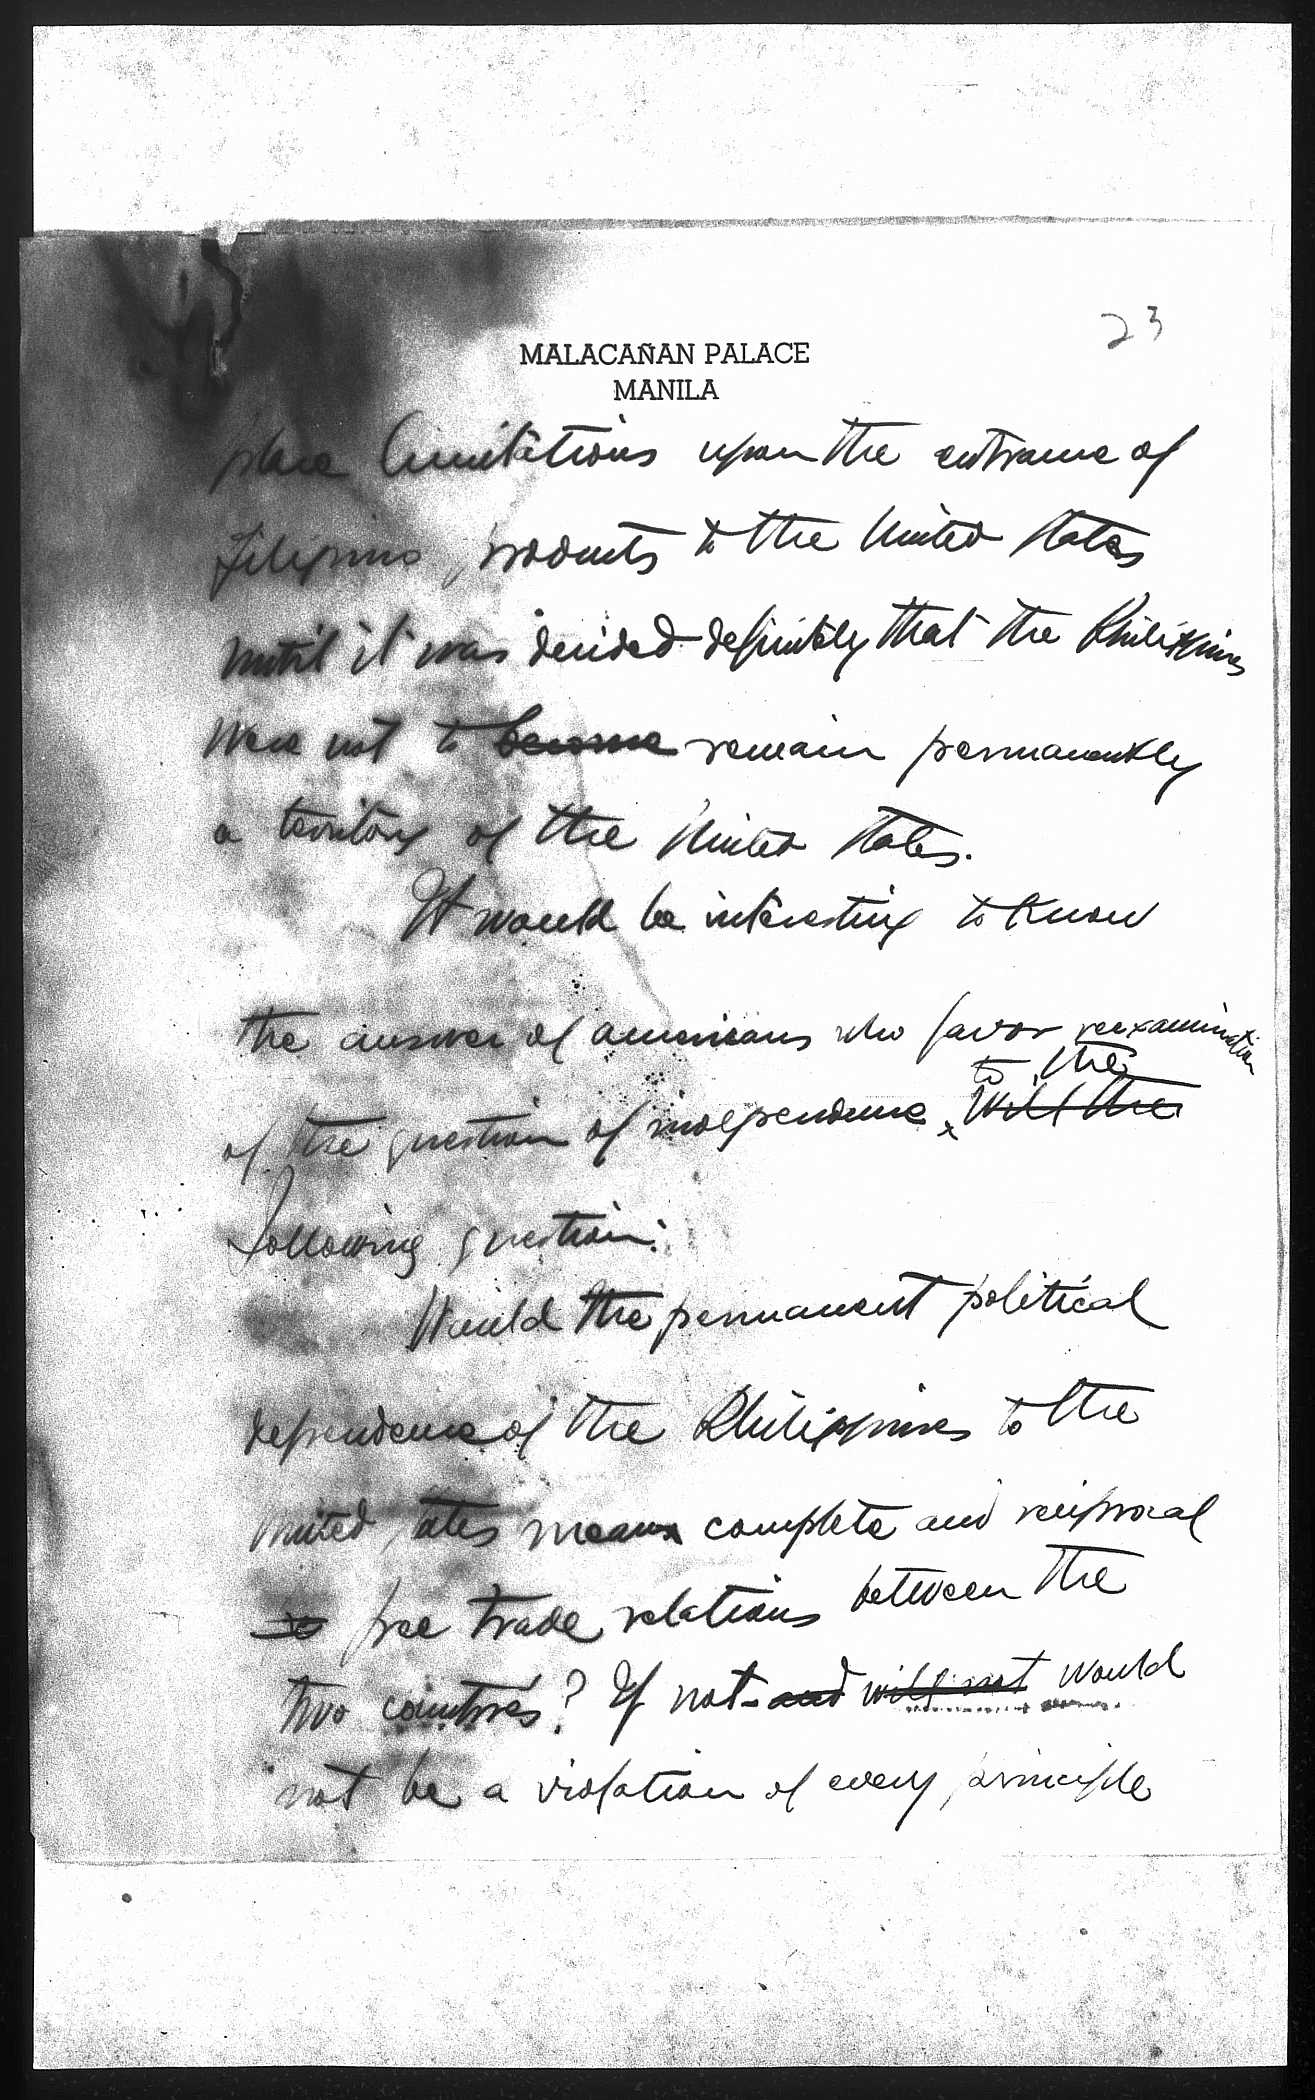 23
MALACAÑAN PALACE
MANILA
place limitations upon the entrance of
Filipino products to the United States
until it was decided definitely that the Philippines
were not to become remain permanently
a territory of the United States.
It would be interesting to know
the answer of americans who favor reexamination
to the
of the question of independence will the
following question:
Would the permanent political
dependence of the Philippines to the
United States mean complete and reciprocal
free trade relations between the
two countries? If not and will not would
not be a violation of every principle